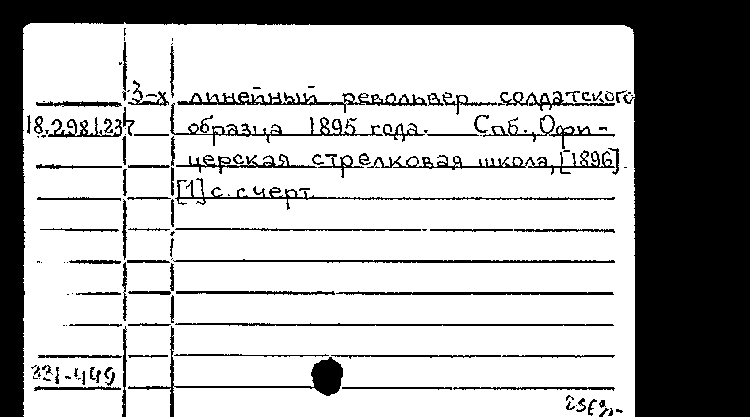 3-х линейный револьвер солдатского
18.298.1.237 образца 1895 года. Спб., Офи-
церская стрелковая школа, [1896].
[1] с. с черт.
331-449